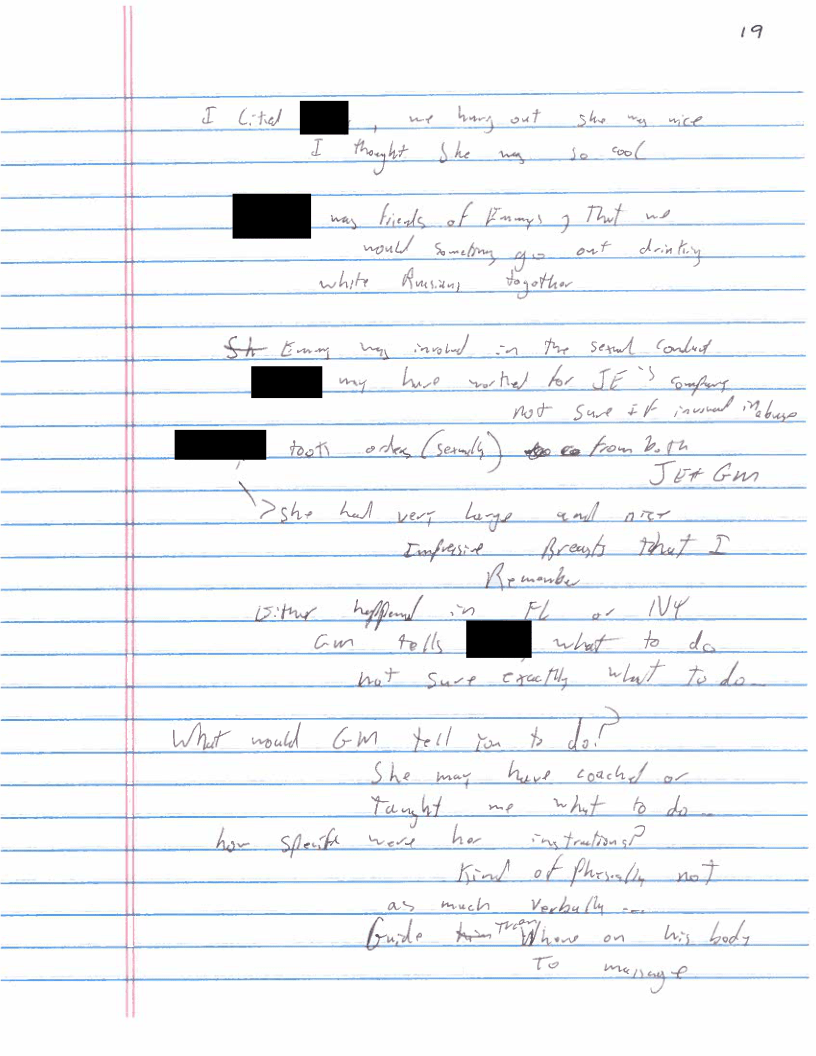 19
I liked , we hang out she was nice
I thought she was so cool
was friends of Emmys, That we
would sometimes go out drinking
white Russians together
Sh Emmy was involved in the sexual conduct
may have worked for JE's company
not sure if involved in abuse
took orders (sexually) from both
JE + GM
> She had very large and nice
Impressive Breasts that I
Remember
Either happened in FL or NY
GM tells what to do
not sure exactly what to do
What would GM tell you to do?
She may have coached or
Taught me what to do
how specific were her instructions?
Kind of physically not
as much verbally ---
Guide Where on his body
To massage